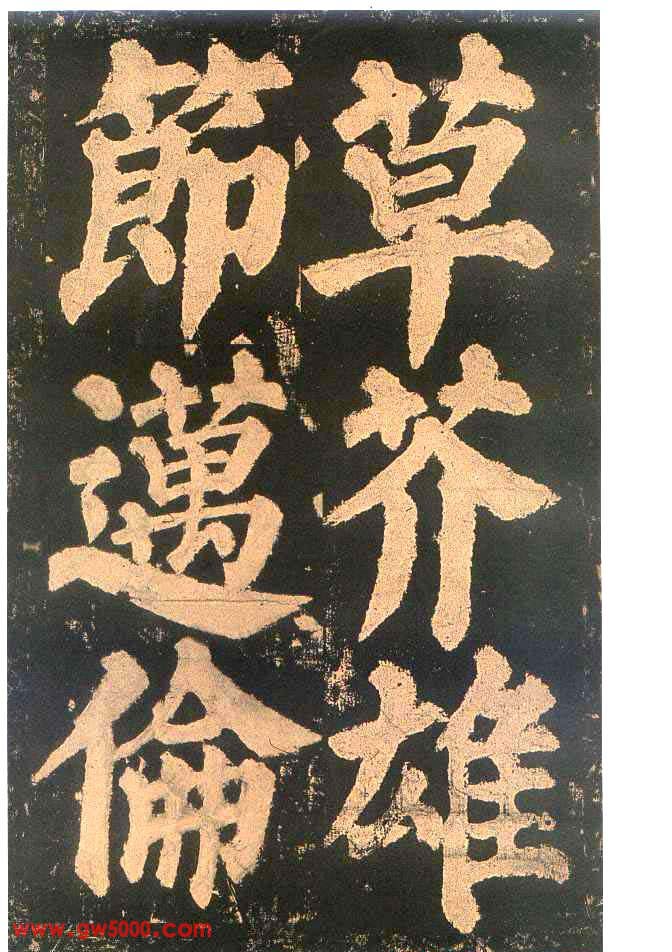 草芥雄
節邁倫
www.gw5000.com